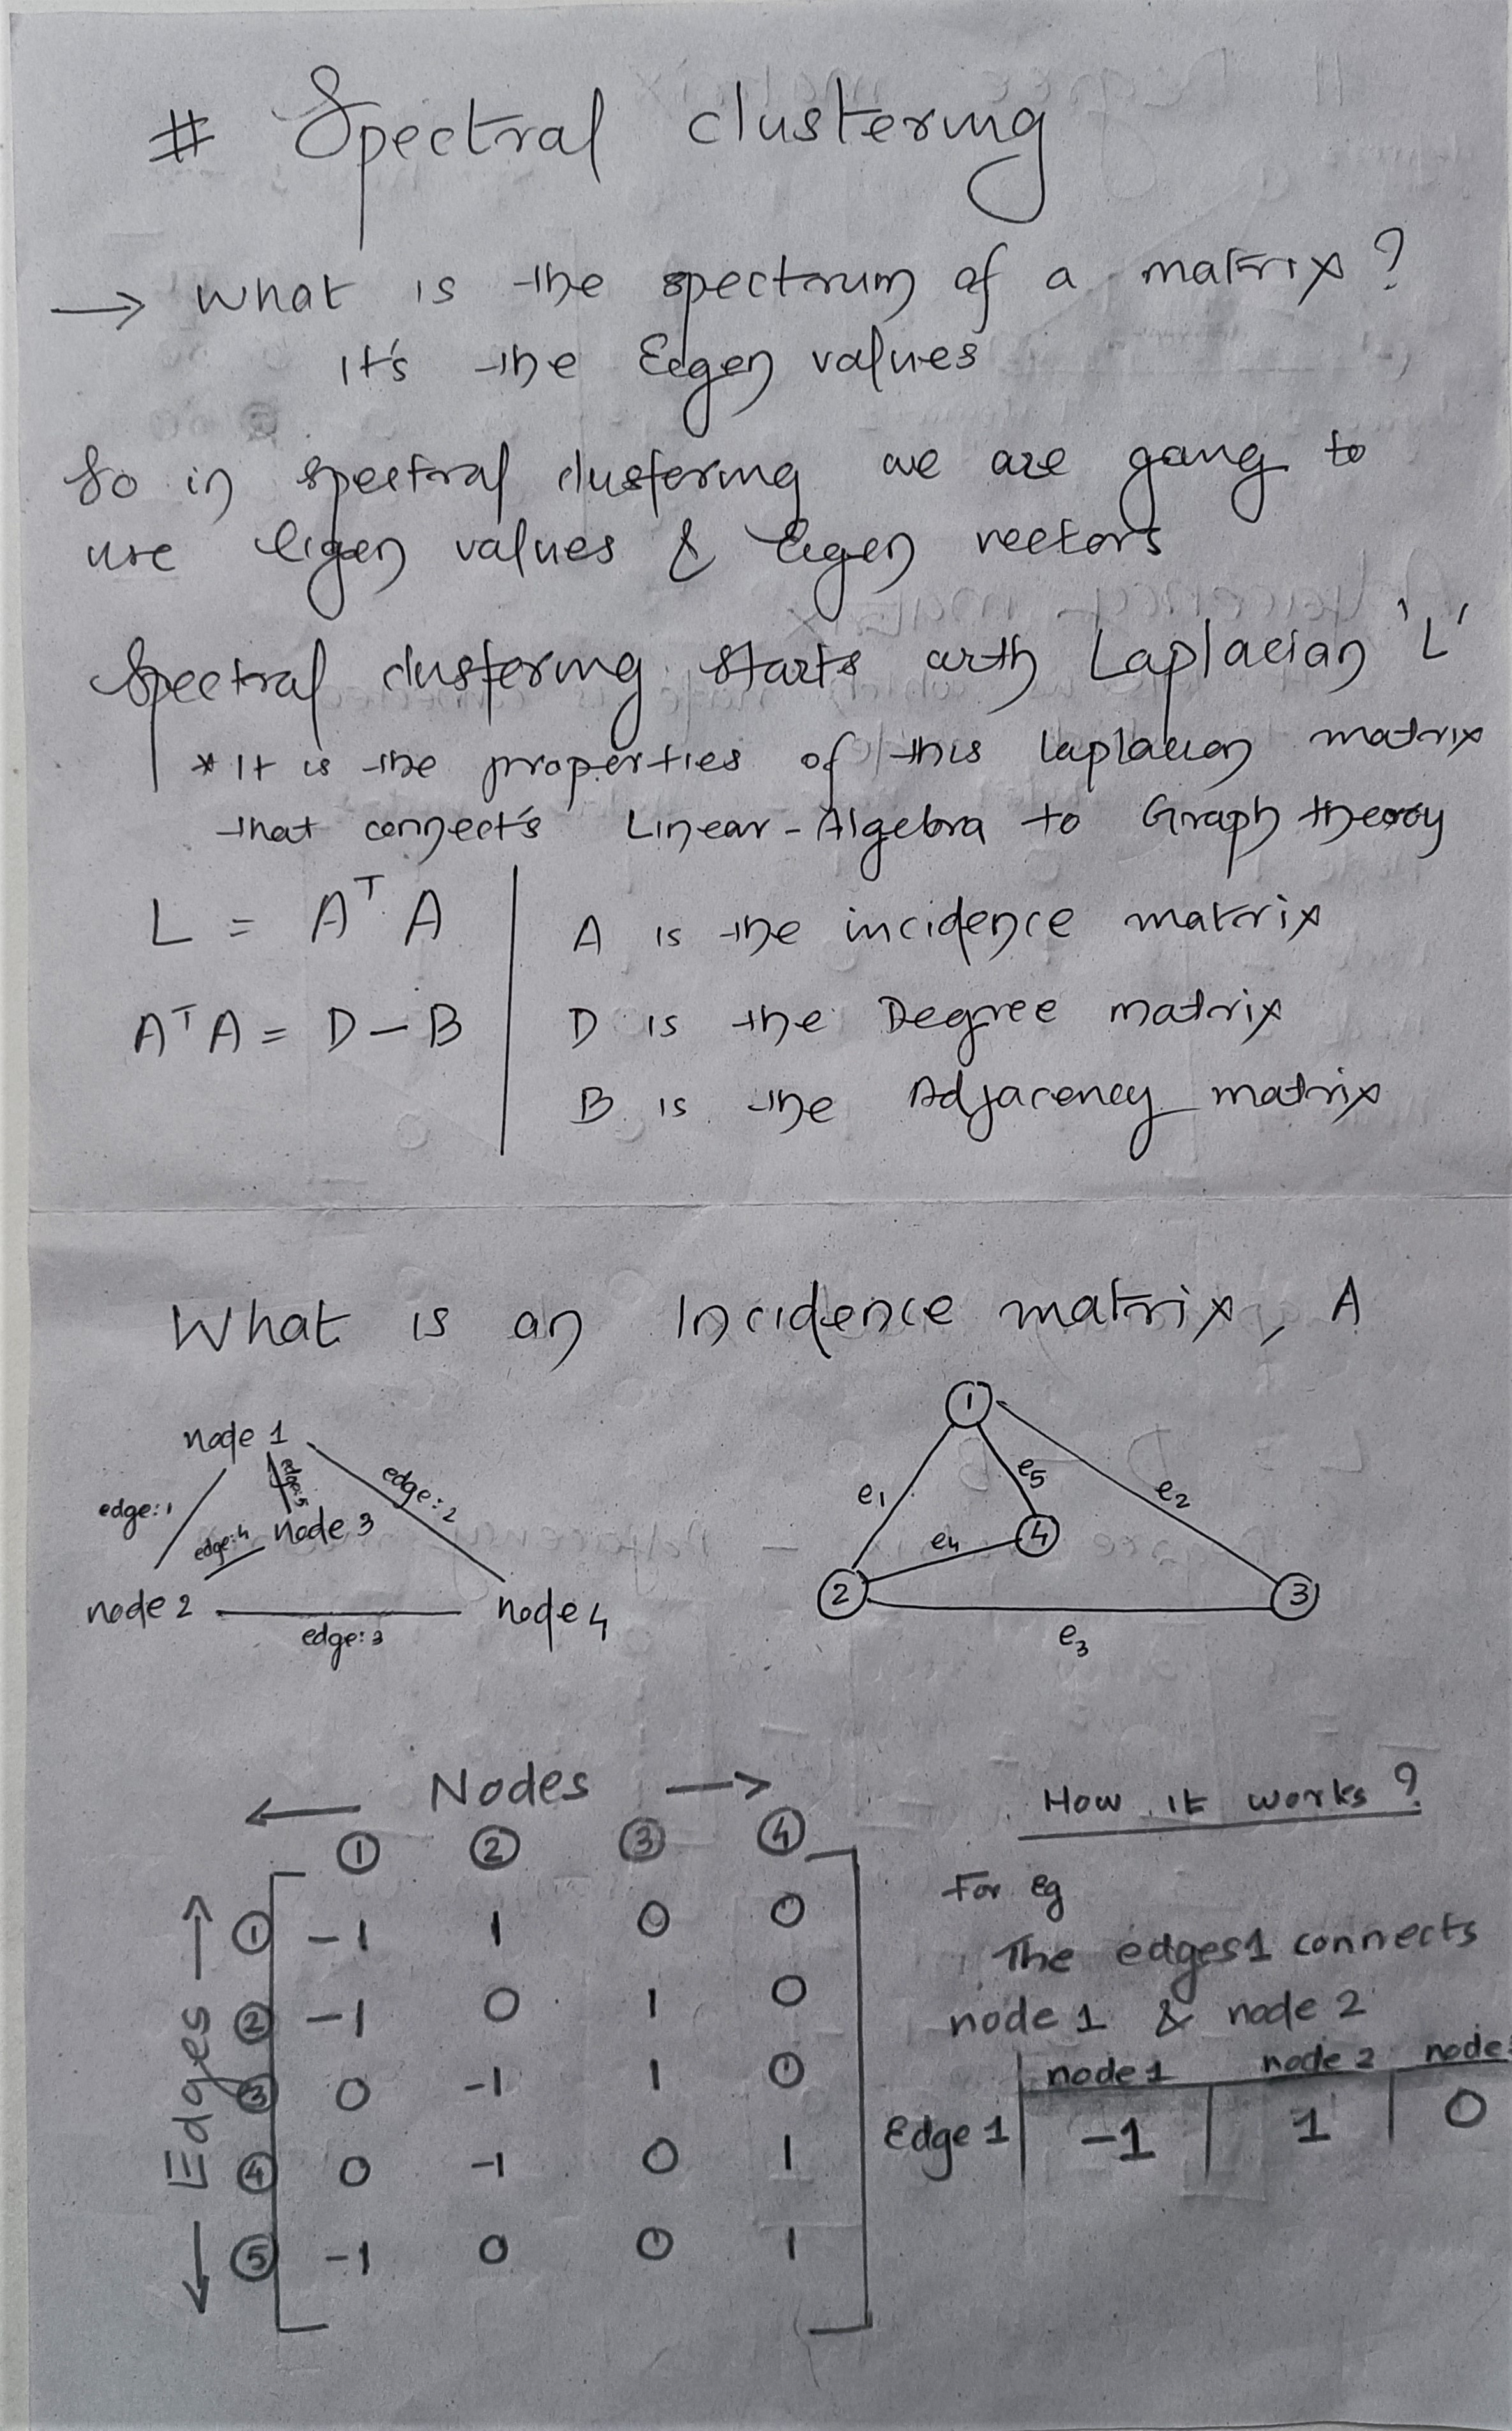 # Spectral clustering
→ What is the spectrum of a matrix?
It's the Eigen values
So in spectral clustering we are going to
use eigen values & Eigen vectors
Spectral clustering starts with Laplacian 'L'
* It is the properties of this laplacian matrix
that connect's Linear-Algebra to Graph theory
L = AᵀA | A is the incidence matrix
AᵀA = D – B | D is the Degree matrix
B is the Adjacency matrix
What is an Incidence matrix, A
node 1
edge:1
edge:5
edge:2
edge:4
node 3
node 2
edge:3
node 4
1
e1
e5
e2
e4
4
2
3
e3
← Nodes →
① ② ③ ④
← Edges →
① -1 1 0 0
② -1 0 1 0
③ 0 -1 1 0
④ 0 -1 0 1
⑤ -1 0 0 1
How it works?
For eg
The edges1 connects
node 1 & node 2
node 1 node 2 node
Edge 1 -1 1 0